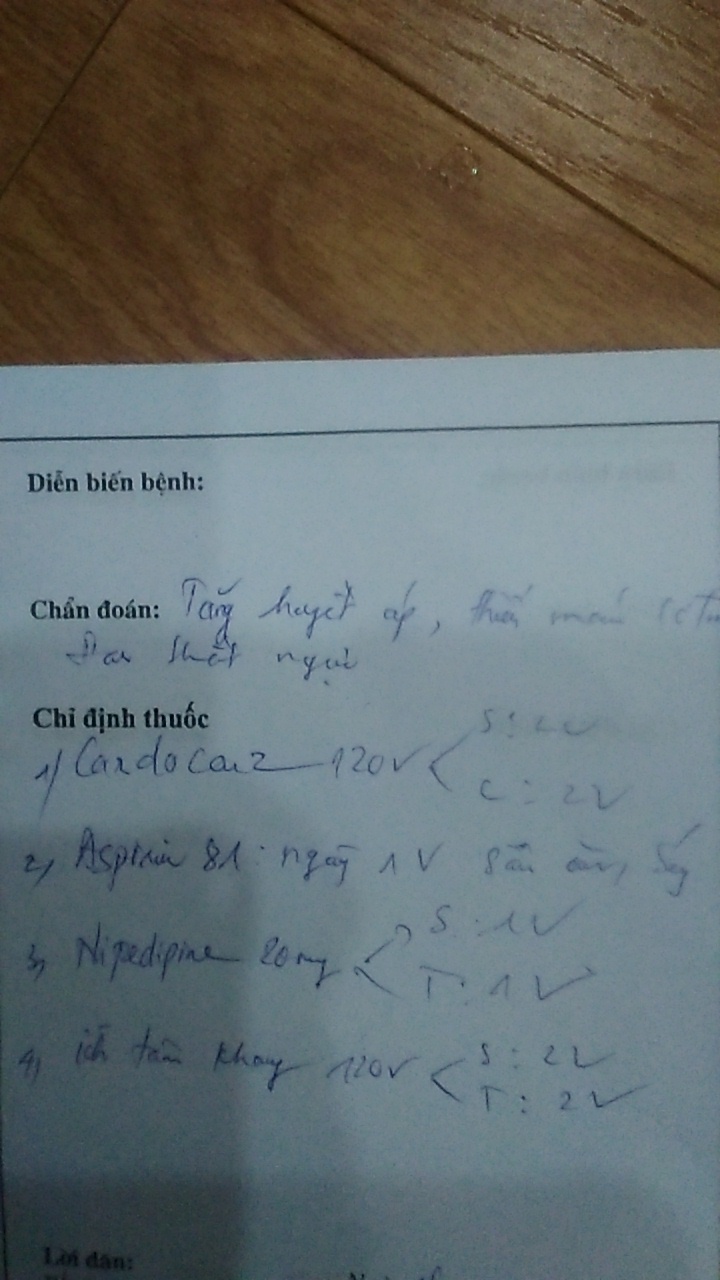 Diễn biến bệnh:
Chẩn đoán: Tăng huyết áp, thiếu máu
Đau thắt ngực
Chỉ định thuốc
S: 2V
1) Cardocorz 120V <
C: 2V
2) Aspirin 81: ngày 1V sau ăn, sáng
S: 1V
3) Nifedipine 20mg <
T: 1V
4) ích tâm khang 120V < S: 2V
T: 2V
Lời dặn: